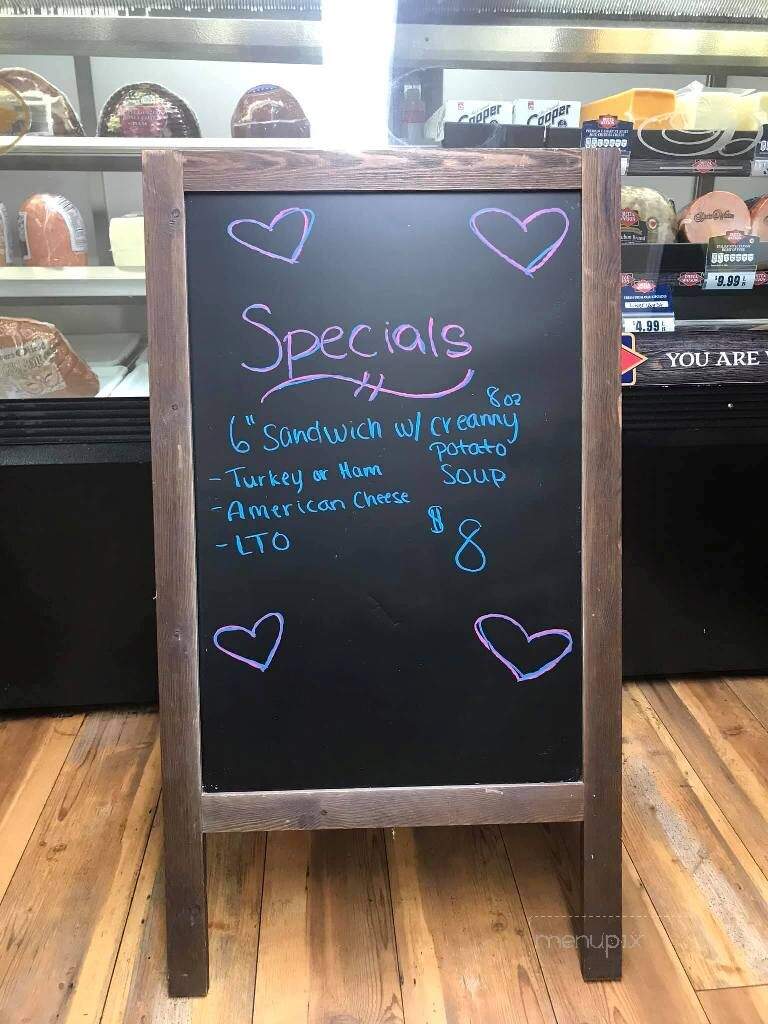 Cooper
Cooper
$9.99
$4.99
YOU ARE
Specials
8oz
6" Sandwich w/ creamy
potato
- Turkey or Ham
Soup
- American Cheese
- LTO
$8
menupix